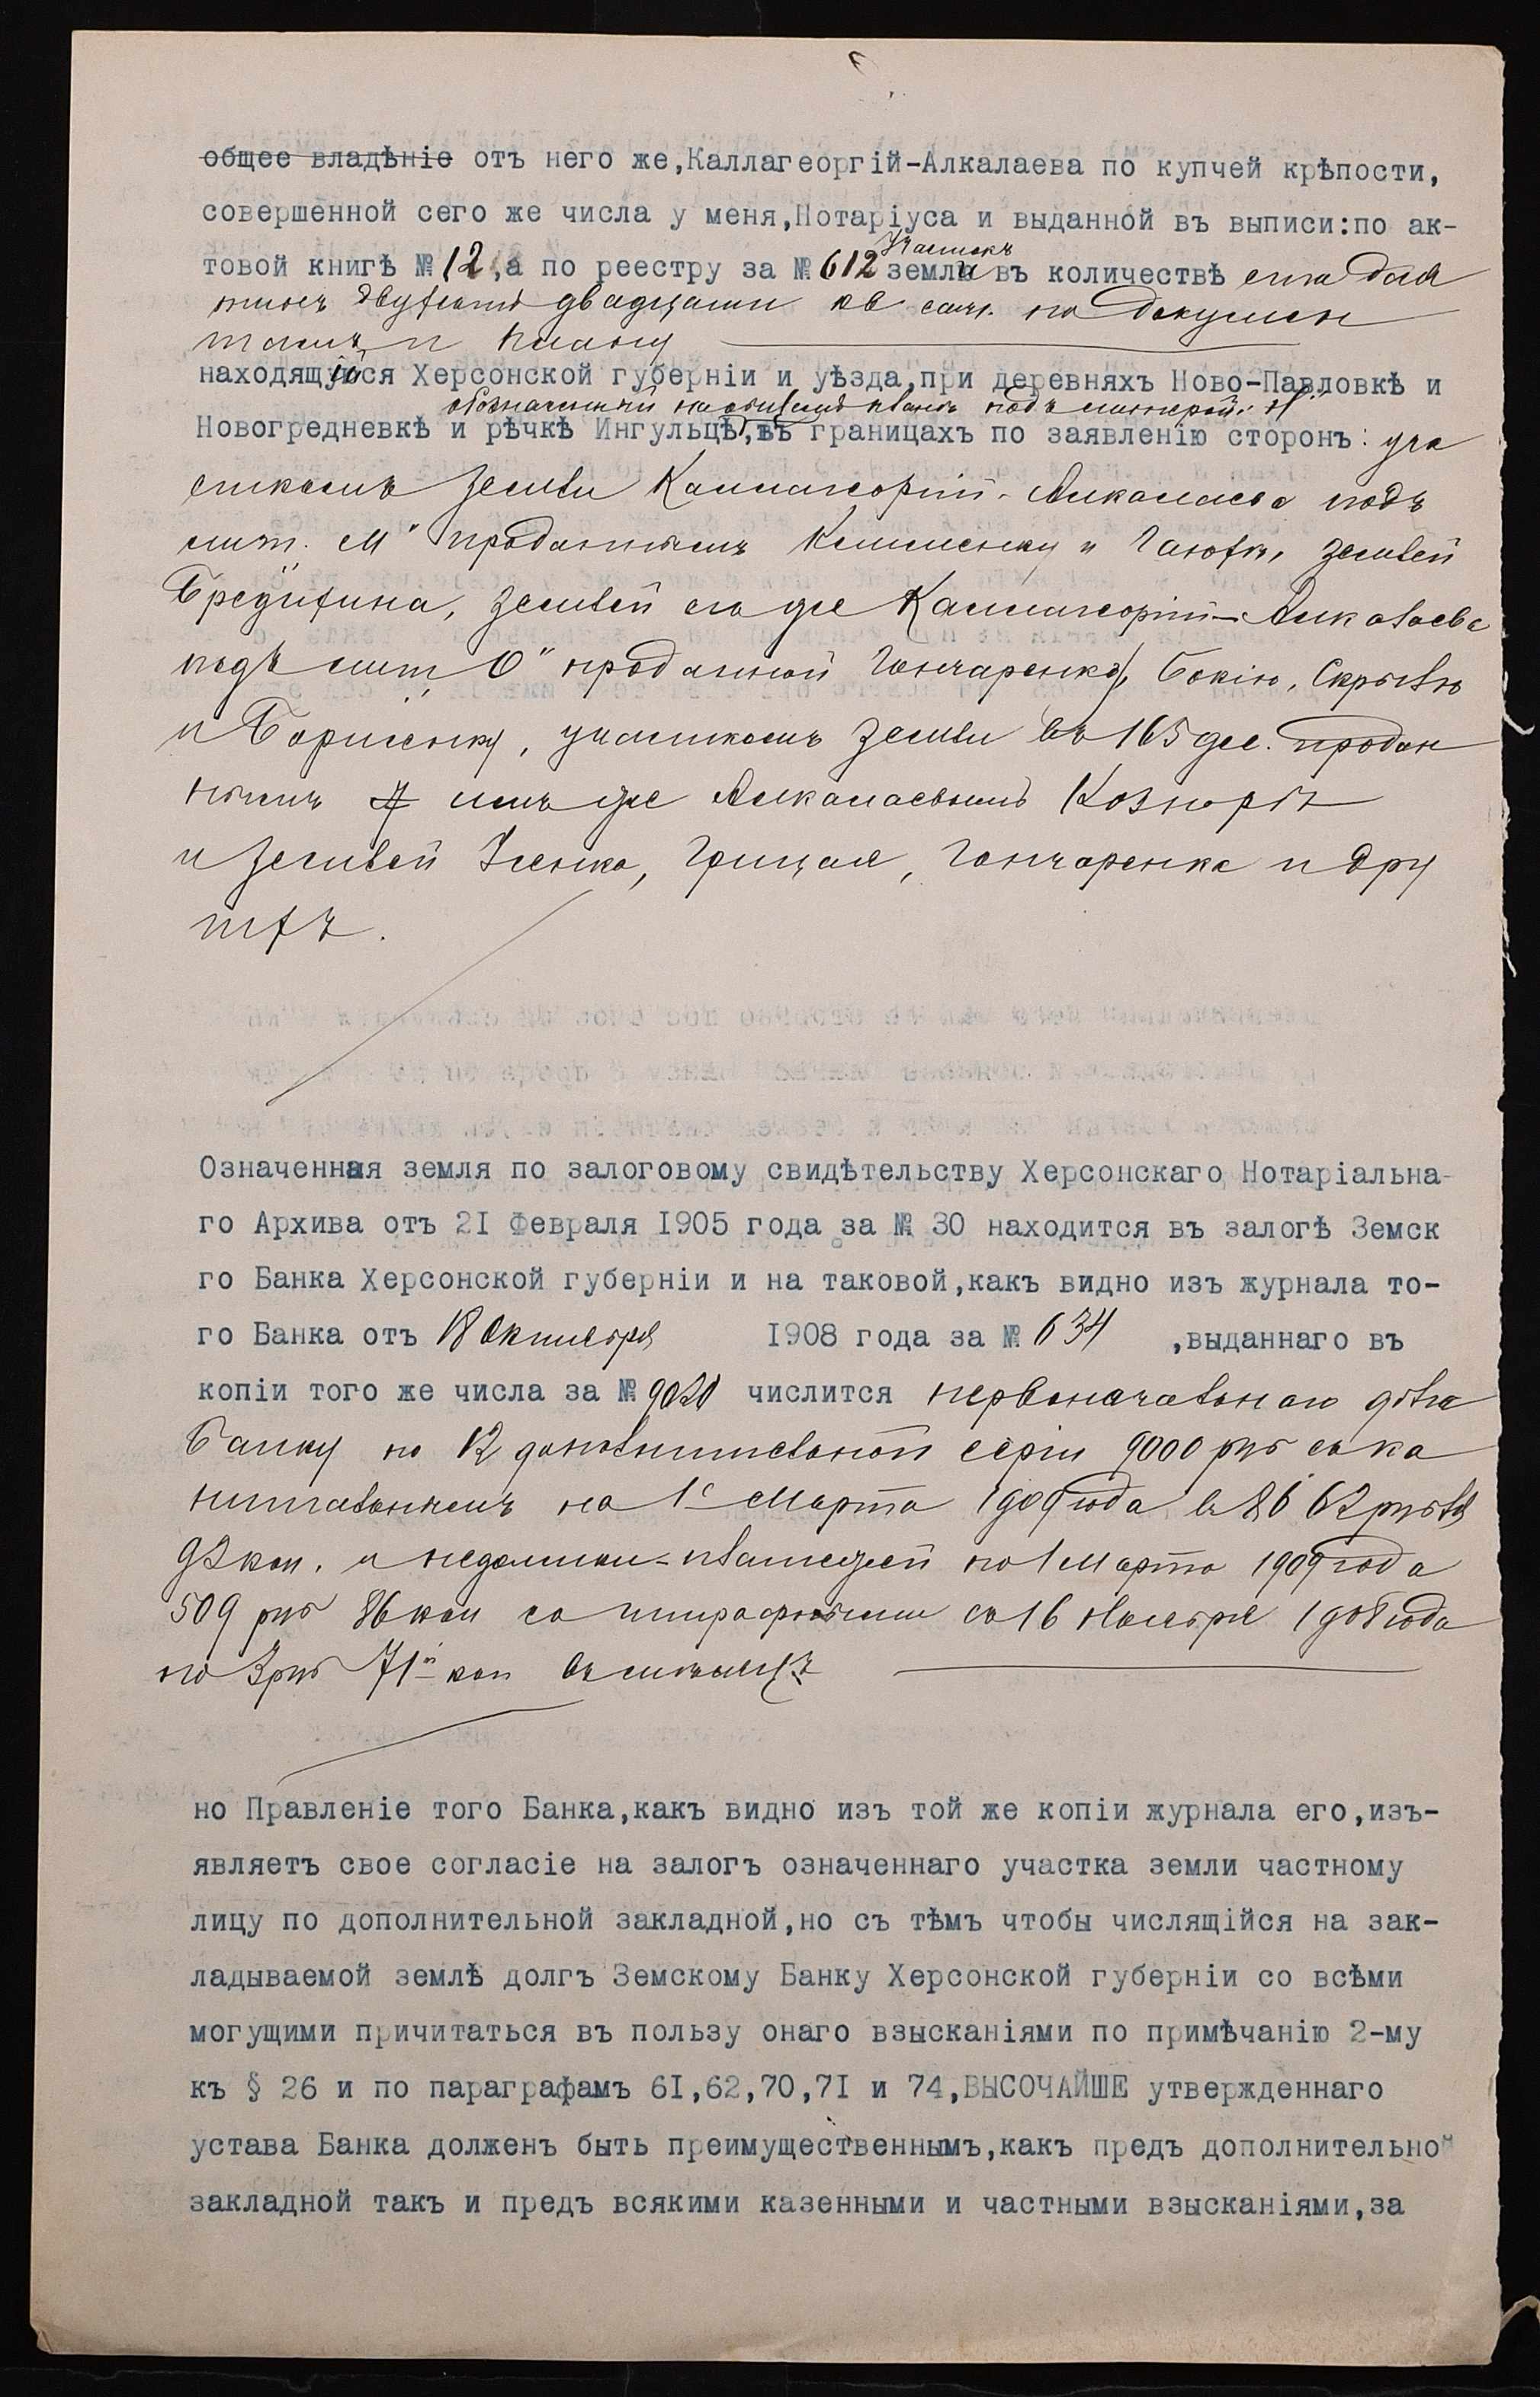 общее владѣніе отъ него же,Каллагеоргій-Алкалаева по купчей крѣпости,
совершенной сего же числа у меня,Нотаріуса и выданной въ выписи:по ак-
участокъ
товой книгѣ № 12,а по реестру за № 612 земли въ количествѣ ста деся
тинъ двухсотъ двадцати кв. саж. по докумен
тамъ и плану
находящійся Херсонской губерніи и уѣзда,при деревняхъ Ново-Павловкѣ и
обозначенный на общемъ планѣ подъ литерой „Н"
Новогредневкѣ и рѣчкѣ Ингульцѣ,въ границахъ по заявленію сторонъ: уча
сткомъ земли Каллагеоргій-Алкалаева подъ
лит. М" проданнымъ Клименку и Гаюхѣ, землей
Бредихина, землей его же Каллагеоргій-Алкалаева
подъ лит О" проданной Гончаренко, Бокію, Скрылю
и Борисенку, участкомъ земли въ 165 дес. продан
нымъ имъ же Алкалаевымъ Козырѣ
и землей Усенка, Грицая, Гончаренка и дру
гихъ.
Означенная земля по залоговому свидѣтельству Херсонскаго Нотаріальна-
го Архива отъ 2I Февраля I905 года за № 30 находится въ залогѣ Земск
го Банка Херсонской губерніи и на таковой,какъ видно изъ журнала то-
го Банка отъ 18 Октября I908 года за № 634 ,выданнаго въ
копіи того же числа за № 9020 числится первоначальнаго долга
Банку по 12 дополнительной серіи 9000 руб съ ка
питальнымъ на 1е Марта 1909 года въ 8662 рубля
92 коп. и недоимки-платежей по 1 Марта 1909 года
509 руб 86 коп со штрафными съ 16 Ноября 1908 года
по 3 руб 71 коп въ мѣсяцъ
но Правленіе того Банка,какъ видно изъ той же копіи журнала его,изъ-
являетъ свое согласіе на залогъ означеннаго участка земли частному
лицу по дополнительной закладной,но съ тѣмъ чтобы числящійся на зак-
ладываемой землѣ долгъ Земскому Банку Херсонской губерніи со всѣми
могущими причитаться въ пользу онаго взысканіями по примѣчанію 2-му
къ § 26 и по параграфамъ 6I,62,70,7I и 74,ВЫСОЧАЙШЕ утвержденнаго
устава Банка долженъ быть преимущественнымъ,какъ предъ дополнительной
закладной такъ и предъ всякими казенными и частными взысканіями,за